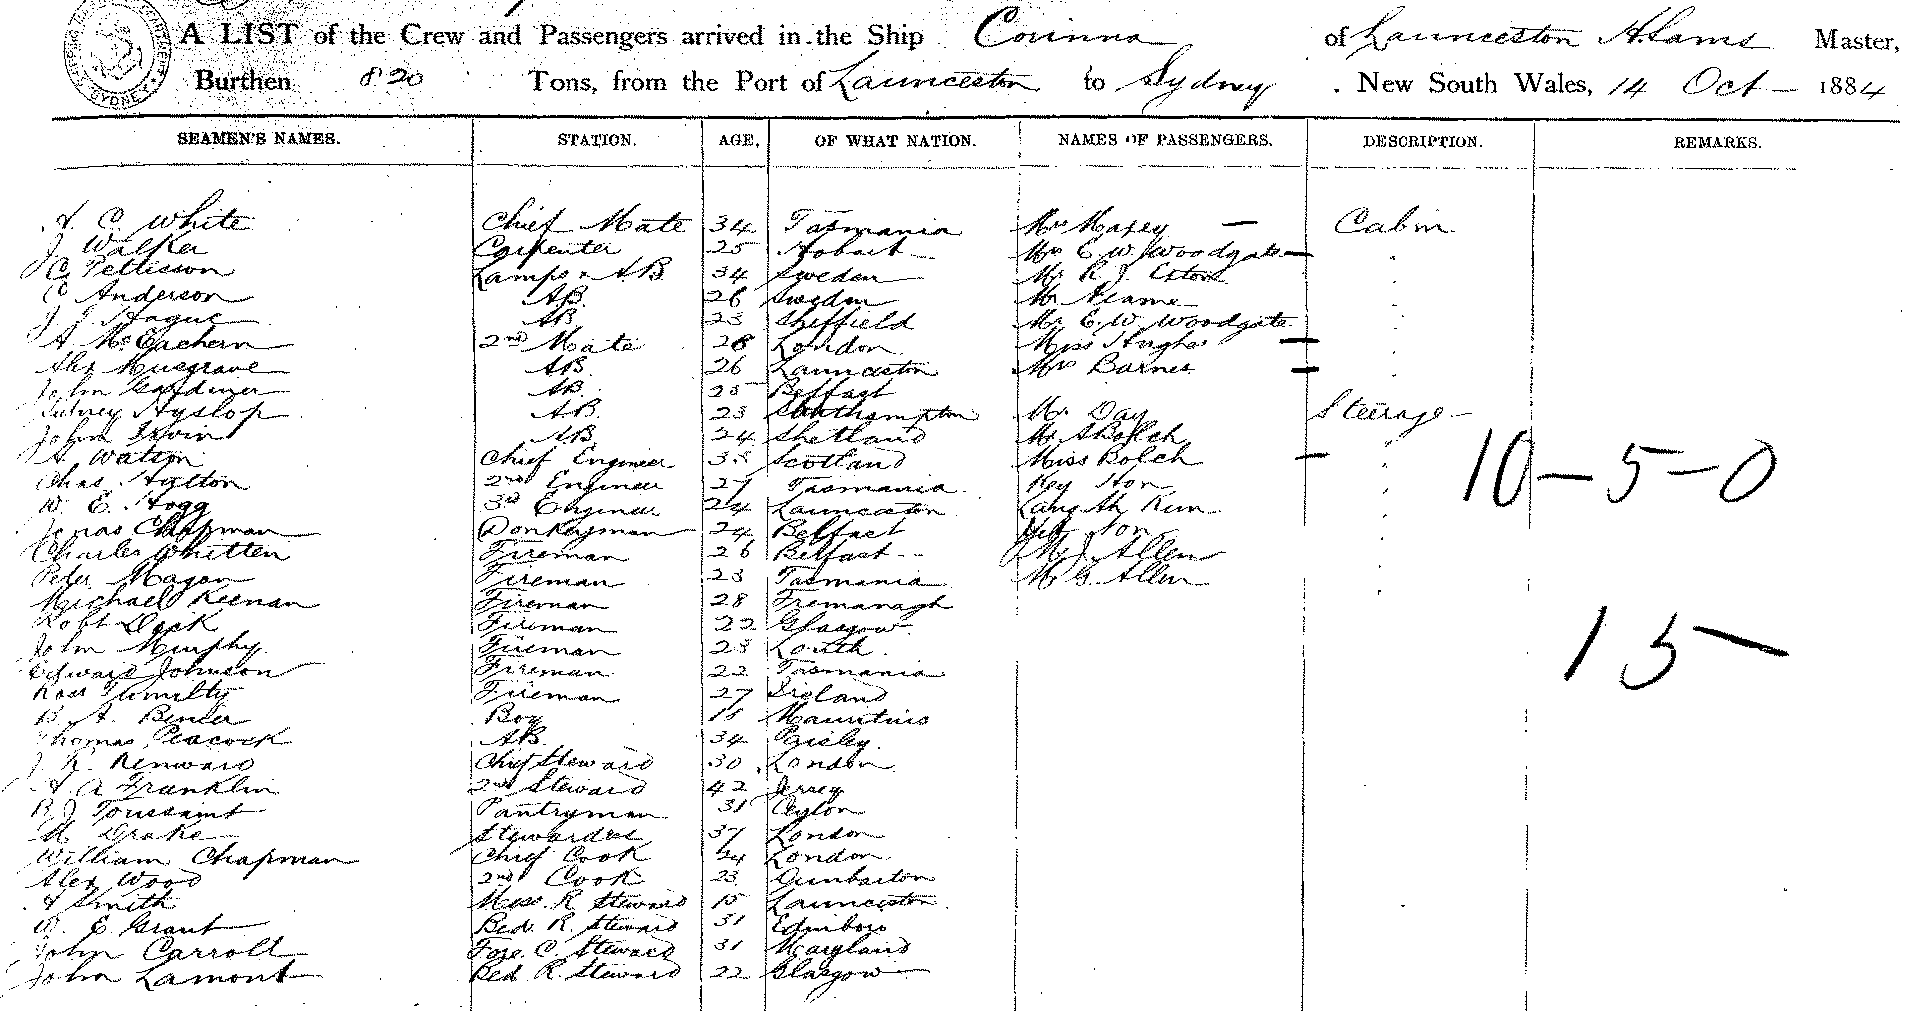 A LIST of the Crew and Passengers arrived in the Ship Corinna of Launceston Adams Master,
Burthen 820 Tons, from the Port of Launceston to Sydney . New South Wales, 14 Oct 1884
SEAMEN'S NAMES. STATION. AGE. OF WHAT NATION. NAMES OF PASSENGERS. DESCRIPTION. REMARKS.
A. C. White Chief Mate 34 Tasmania Mrs Maxey — Cabin
J Walker Carpenter 25 Hobart Mrs E W Woodgate —
C. Pettisson Lamps & AB 34 Sweden Mr R J
C Anderson AB 26 Sweden Mr
J J Hague AB 23 Sheffield Mr E. W. Woodgate
A McEachern 2nd Mate 28 London Miss Hughes —
Alex Musgrave AB 26 Launceston Mrs Barnes —
John Gardiner AB 25 Belfast
Hyslop AB 23 Southampton Mr Day Steerage
John Irvin AB 24 Shetland Mr Bolch
A Watson Chief Engineer Scotland Miss Bolch —
Chas Halton 2nd Engineer 27 Tasmania Key Hon 10-5-0
W. E. Hogg 3rd Engineer 24 Launceston Kum
Chapman Donkeyman 24 Belfast
Charles Whitten Fireman 26 Belfast Allen
Peter Magan Fireman 23 Tasmania Mr G. Allen
Michael Keenan Fireman 28 Fremanagh
Robt Dock Fireman 22 Glasgow 15
John Murphy Fireman 23 Louth
Edward Johnson Fireman 22 Tasmania
Fireman 27 Ireland
B. A. Binder Boy Mauritius
Thomas Peacock AB 34 Paisley
J. R. Renward Chief Steward 30 London
A A Franklin 2nd Steward 42 Jersey
B J Toussaint Pantryman 31 Ceylon
Drake Stewardess 37 London
William Chapman Chief Cook 24 London
Alex Wood 2nd Cook 23 Dunbarton
A Smith Mess. R Steward 15 Launceston
E. Grant Bed. R. Steward 31 Edinboro
John Carroll Fore. C. Steward 31 Maryland
John Lamont Bed R. Steward 22 Glasgow